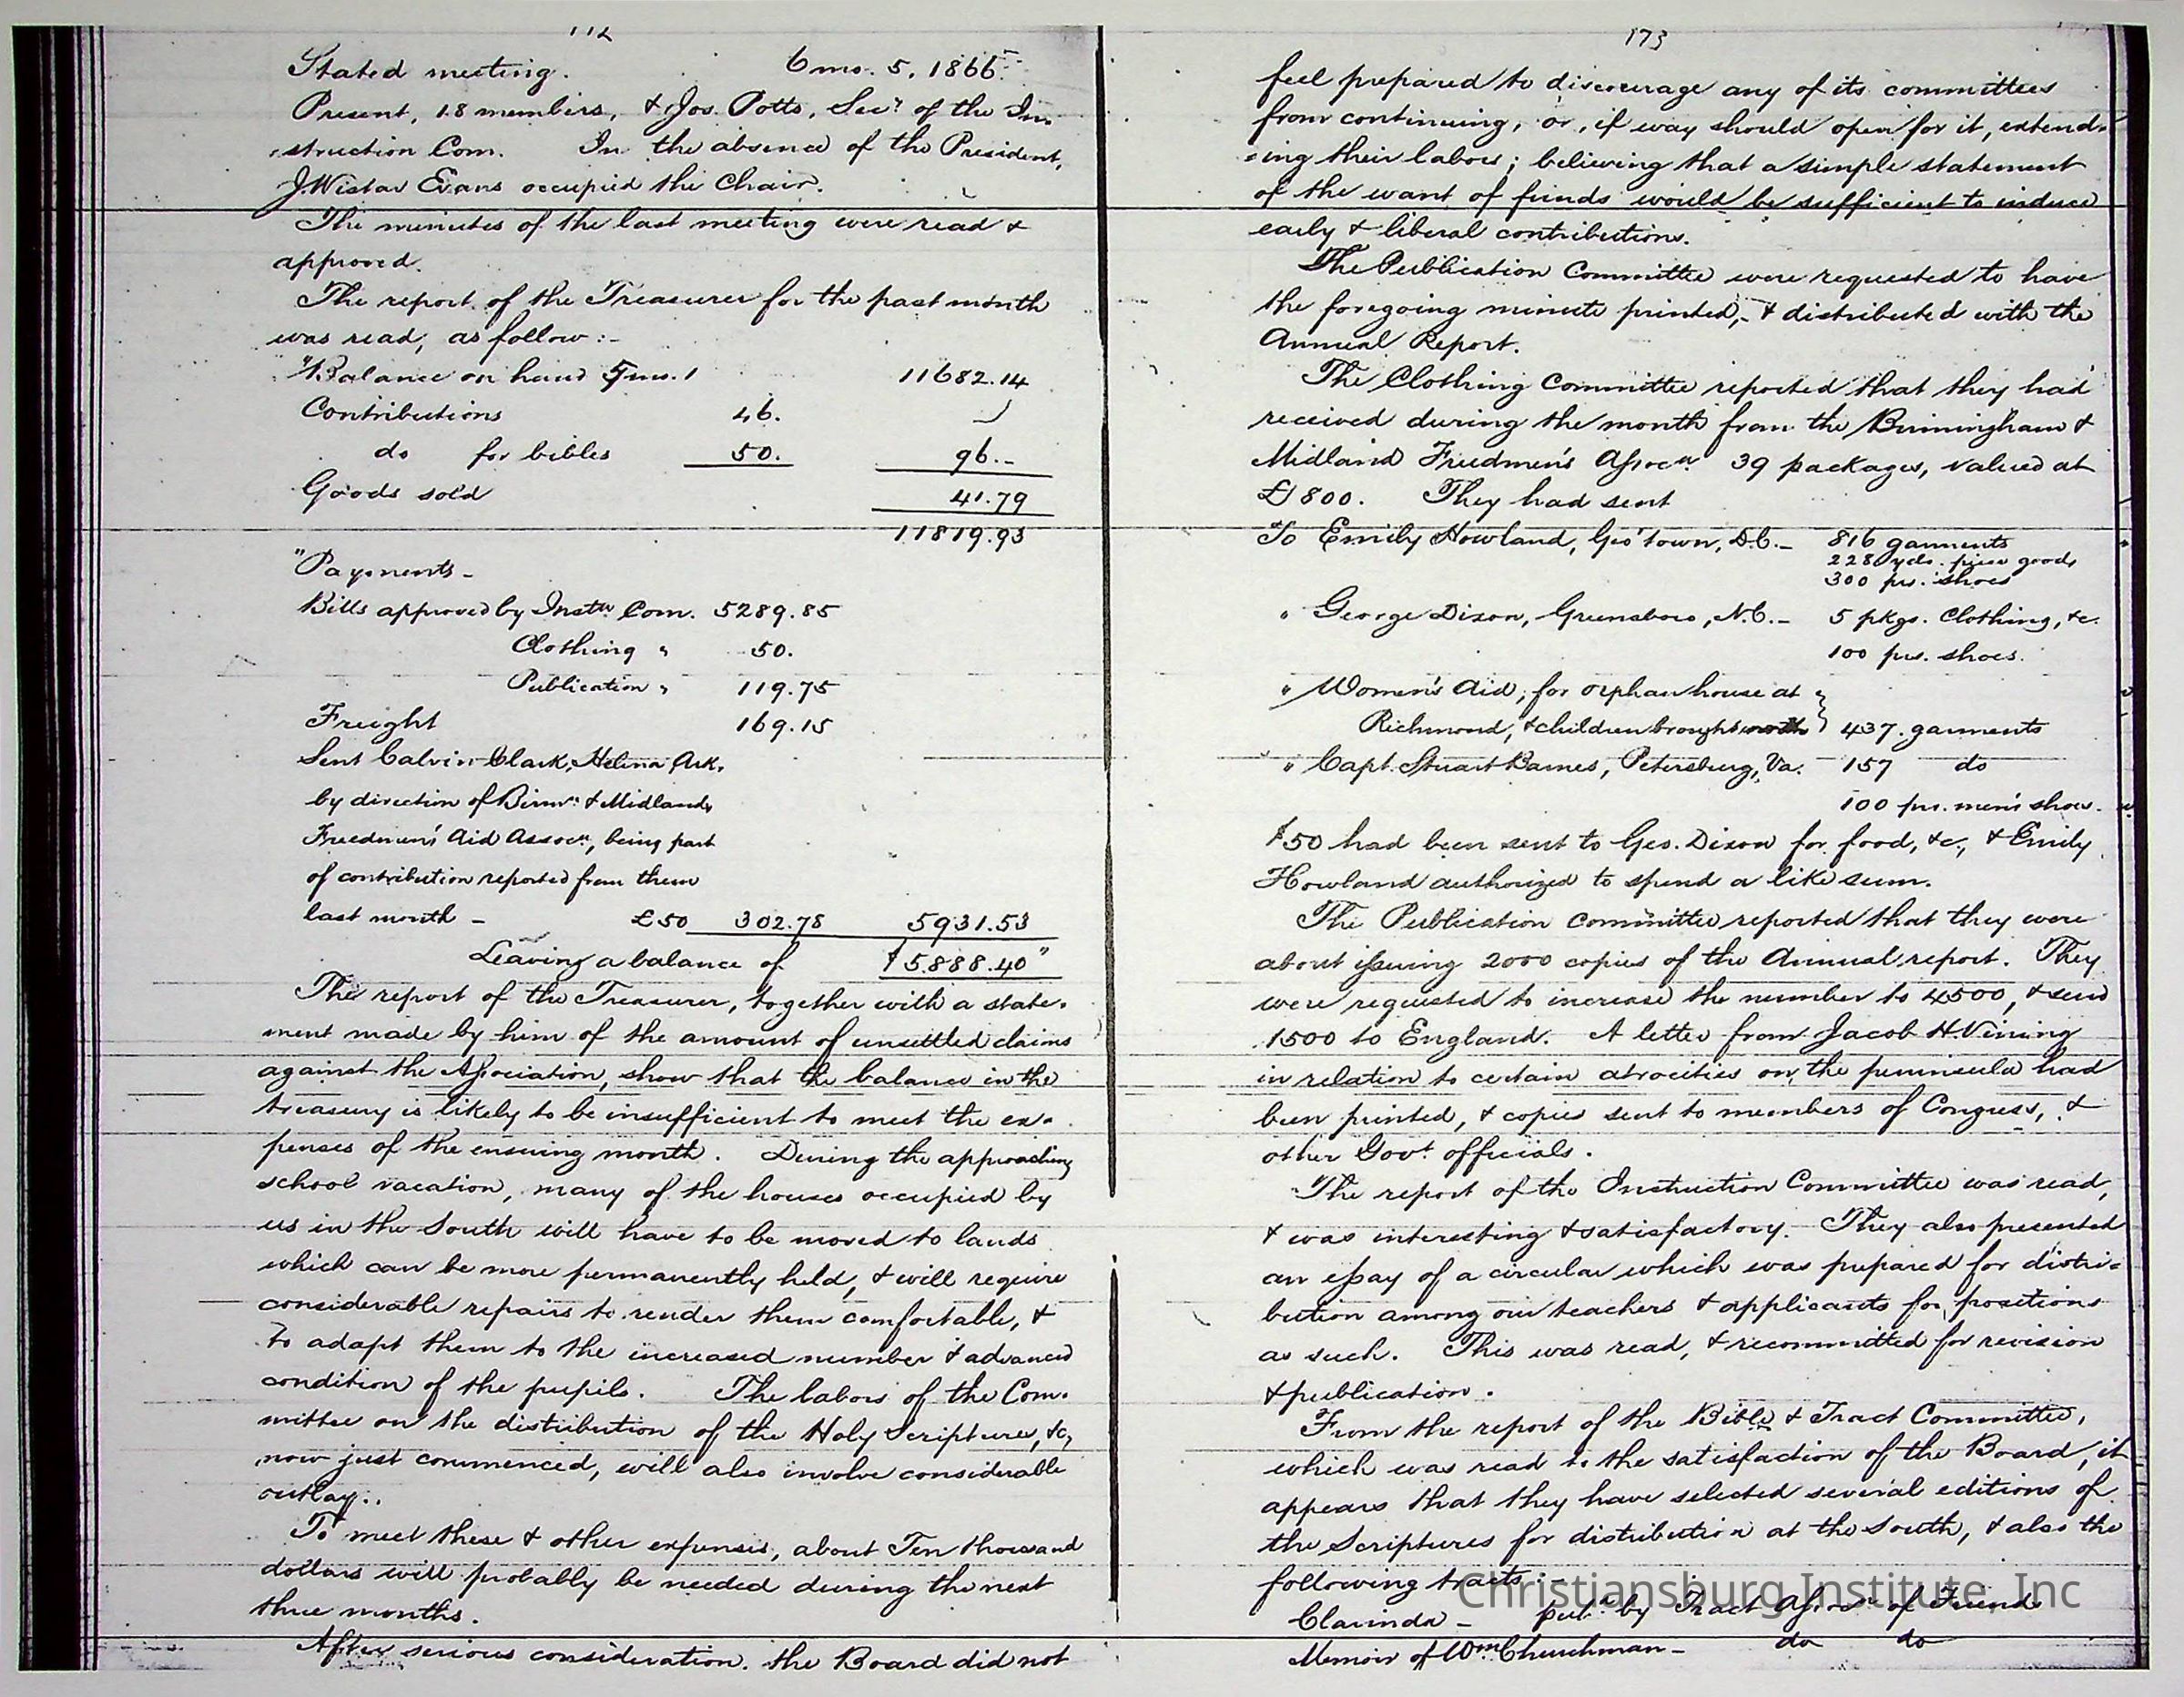 112
Stated meeting. 6 mo. 5, 1866.
Present, 18 members, & Jos. Potts, Secy of the In-
struction Com. In the absence of the President,
J. Wistar Evans occupied the Chair.
The minutes of the last meeting were read &
approved.
The report of the Treasurer for the past month
was read, as follow:-
"Balance on hand 5 mo. 1 11682.14
Contributions 46.
do for bibles 50. 96.-
Goods sold 41.79
11819.93
"Payments-
Bills approved by Instn Com. 5289.85
Clothing " 50.
Publication " 119.75
Freight 169.15
Sent Calvin Clark, Helena Ark.
by direction of Birmm & Midland
Freedmen's Aid Assocn, being part
of contribution reported from them
last month - £50 302.78 5931.53
Leaving a balance of $5888.40"
The report of the Treasurer, together with a state-
ment made by him of the amount of unsettled claims
against the Association, show that the balance in the
treasury is likely to be insufficient to meet the ex-
penses of the ensuing month. During the approaching
school vacation, many of the houses occupied by
us in the South will have to be moved to lands
which can be more permanently held, & will require
considerable repairs to render them comfortable, &
to adapt them to the increased number & advanced
condition of the pupils. The labors of the Com-
mittee on the distribution of the Holy Scriptures, &c,
now just commenced, will also involve considerable
outlay.
To meet these & other expenses, about Ten thousand
dollars will probably be needed during the next
three months.
After serious consideration, the Board did not
173
feel prepared to discourage any of its committees
from continuing, or, if way should open for it, extend-
ing their labors; believing that a simple statement
of the want of funds would be sufficient to induce
early & liberal contributions.
The Publication Committee were requested to have
the foregoing minute printed, & distributed with the
Annual Report.
The Clothing Committee reported that they had
received during the month from the Birmingham &
Midland Freedmen's Assocn 39 packages, valued at
£1800. They had sent
To Emily Howland, Geo'town, D.C. - 816 garments
228 yds. piece goods
300 prs. shoes
" George Dixon, Greensboro, N.C. - 5 pkgs. Clothing, &c.
100 prs. shoes.
" Women's Aid, for orphan house at
Richmond, & children brought north 437 garments
" Capt. Stuart Barnes, Petersburg, Va. - 157 do
100 prs. men's shoes.
$50 had been sent to Geo. Dixon for food, &c, & Emily
Howland authorized to spend a like sum.
The Publication Committee reported that they were
about issuing 2000 copies of the Annual report. They
were requested to increase the number to 4500, & send
1500 to England. A letter from Jacob H. Vining
in relation to certain atrocities on the peninsula had
been printed, & copies sent to members of Congress, &
other Govt. officials.
The report of the Instruction Committee was read,
& was interesting & satisfactory. They also presented
an essay of a circular which was prepared for distri-
bution among our teachers & applicants for positions
as such. This was read, & recommitted for revision
& publication.
From the report of the Bible & Tract Committee,
which was read to the satisfaction of the Board, it
appears that they have selected several editions of
the Scriptures for distribution at the South, & also the
following tracts:-
Christiansburg Institute, Inc
Clarinda - pubd by Tract Assocn of Friends
Memoir of Wm Churchman - do do